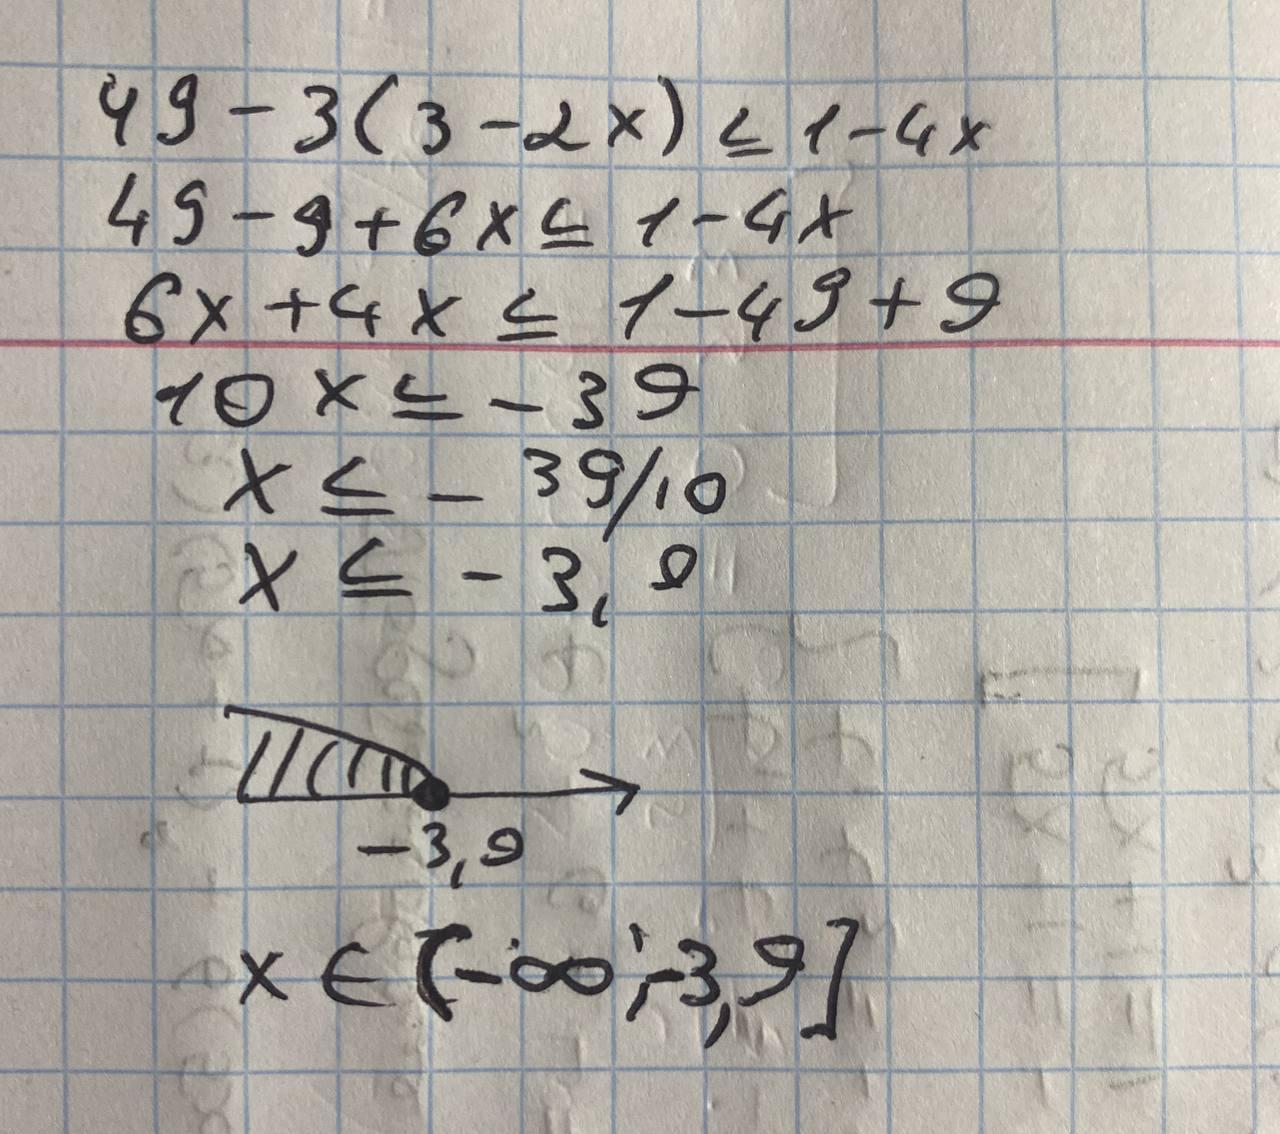 49 - 3(3 - 2x) ≤ 1 - 4x
49 - 9 + 6x ≤ 1 - 4x
6x + 4x ≤ 1 - 49 + 9
10x ≤ - 39
x ≤ - 39/10
x ≤ - 3,9
-3,9
x ∈ (-∞; -3,9]